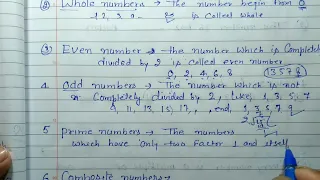 (2) Whole numbers → The number begin from 0
1 2, 3 is called whole
(3) Even number → the number which is completely
divided by 2 is called even number
0, 2, 4, 6, 8 13578
4 odd numbers → The number which is not
completely divided by 2, like, 1, 3, 5, 7
9, 11, 13, 15, 17, , end, 1, 3, 5, 7, 9
5 prime numbers → The numbers
which have only two factor 1 and itself
6 Composite numbers →